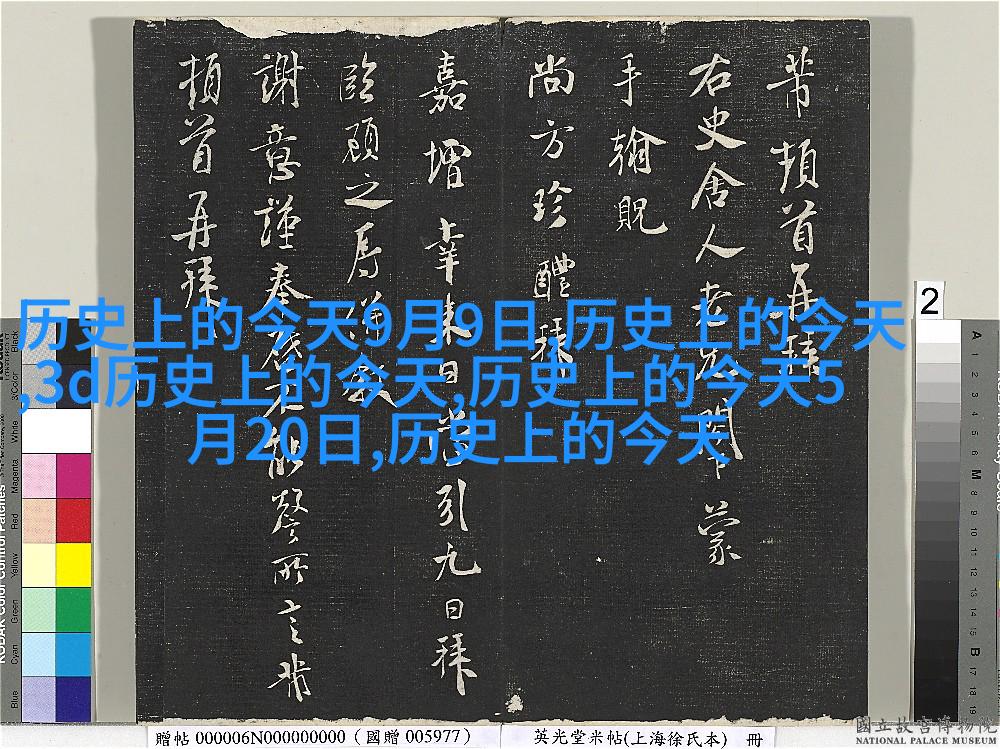 芾頓首再拜
右史舍人老兄閣下蒙
手翰貺
尚方珍醴拜
嘉增幸来日当引九日拜
臨顧之
謝意謹奉啓不能罄所言芾
頓首再拜
历史上的今天9月9日,历史上的今天
,3d历史上的今天,历史上的今天5
月20日,历史上的今天
2
Black
3/Color
White
Magenta
Red
Yellow
Green
Cyan
Blue
A
1
2
3
4
5
6
M
8
9
10
11
12
13
14
15
B
17
18
19
贈帖 000006N000000000 (國贈 005977)
英光堂米帖(上海徐氏本) 冊
國立故宮博物院
NATIONAL PALACE MUSEUM